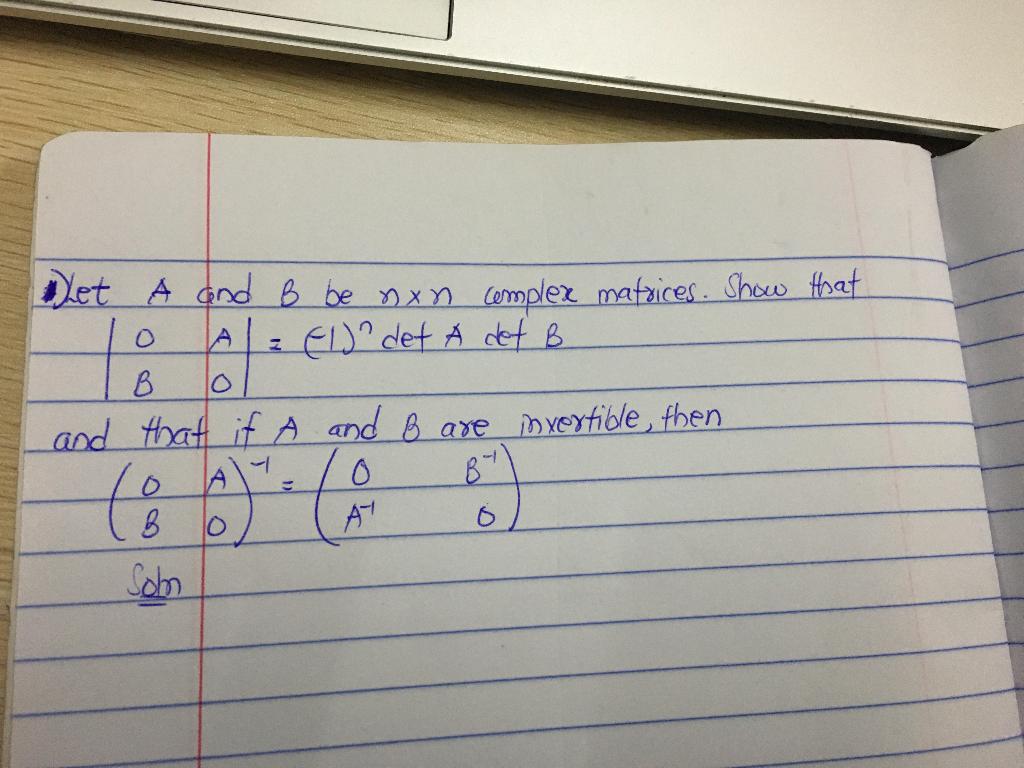 Let A and B be n×n complex matrices. Show that
| O A | = (-1)ⁿ det A det B
| B O |
and that if A and B are invertible, then
( O A )⁻¹ = ( O B⁻¹ )
( B O ) ( A⁻¹ O )
Soln